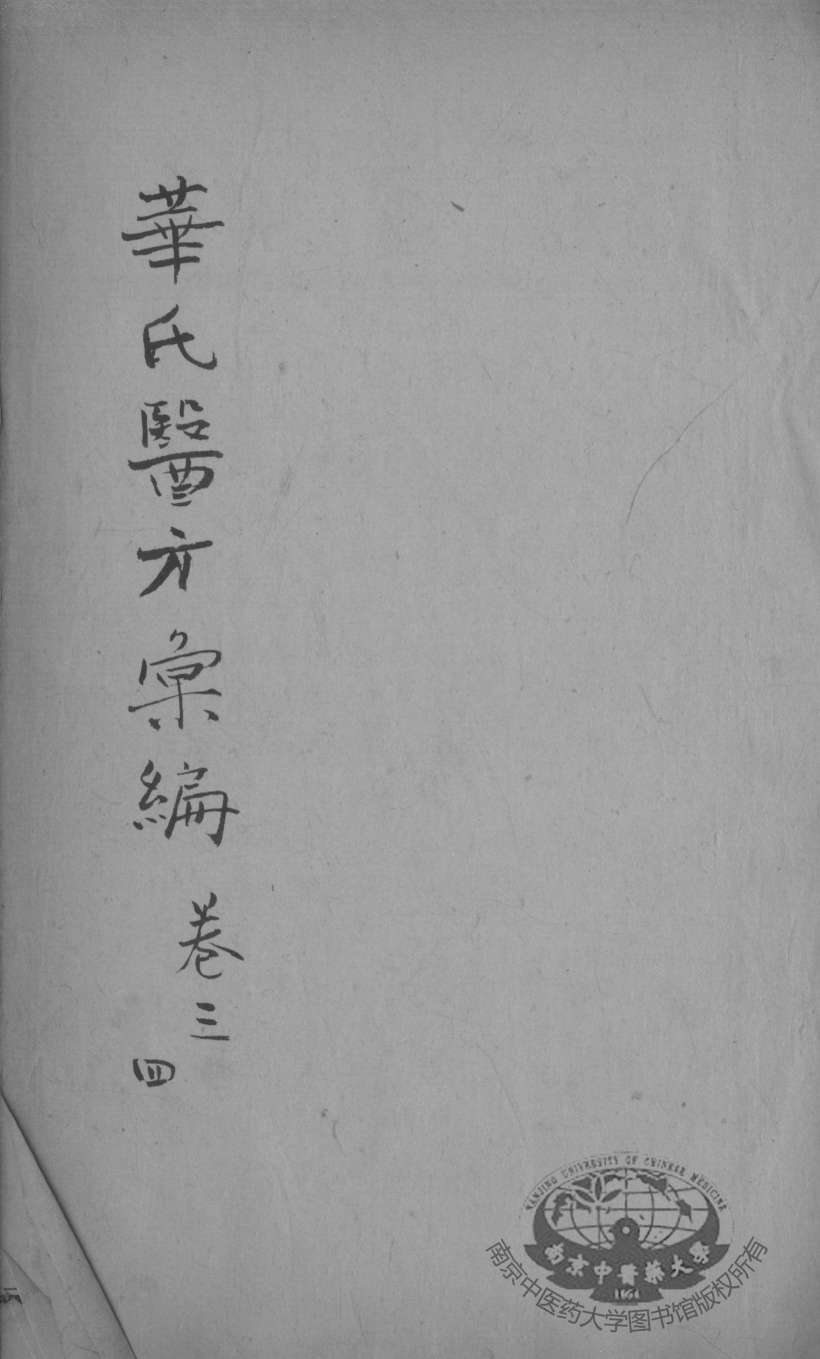 華氏醫方彙編
卷三
四
NANJING UNIVERSITY OF CHINESE MEDICINE
南京中醫藥大學
1954
南京中医药大学图书馆版权所有